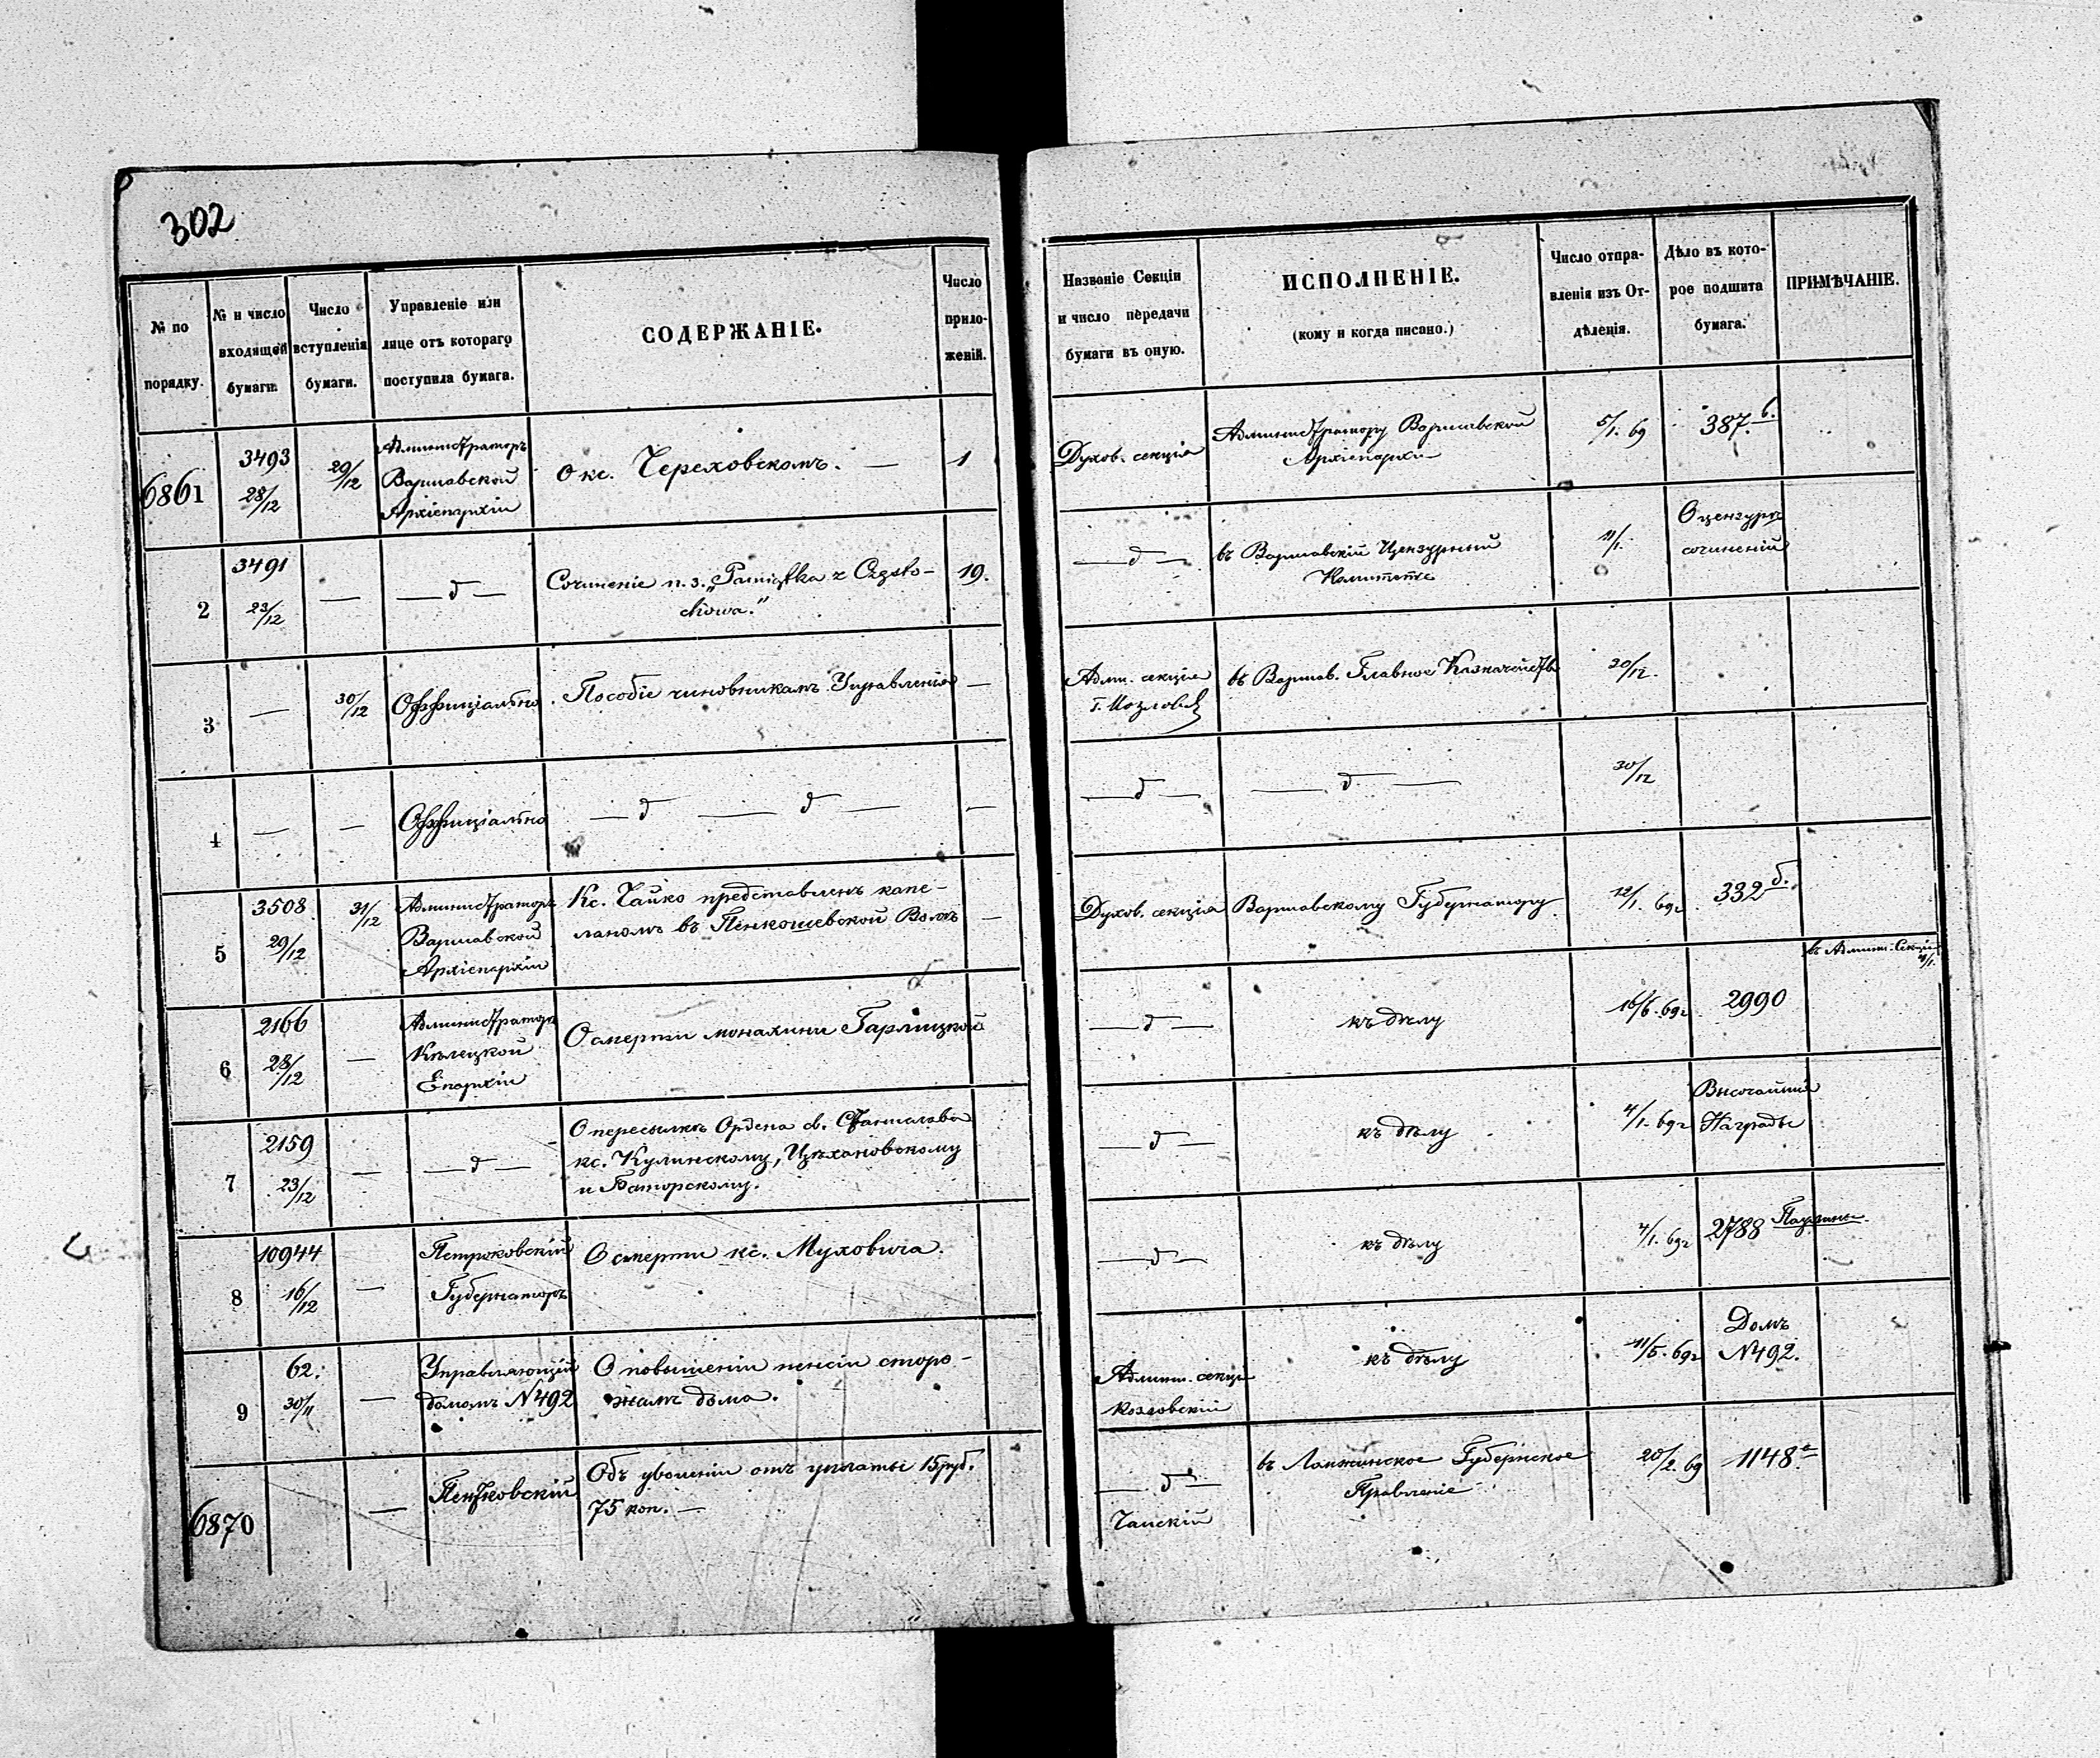 302
№ по порядку.
№ и число входящей бумаги.
Число вступленія бумаги.
Управленіе или лице отъ котораго поступила бумага.
СОДЕРЖАНІЕ.
Число приложеній.
Названіе Секціи и число передачи бумаги въ оную.
ИСПОЛНЕНІЕ.
(кому и когда писано.)
Число отправленія изъ Отдѣленія.
Дѣло въ которое подшита бумага.
ПРИМѢЧАНІЕ.
6861
3493
28/12
29/12
Администраторъ
Варшавской
Архіепархіи
О кс. Череховскомъ. —
1
Духов. секція
Администратору Варшавской
Архіепархіи
5/1. 69
387. в.
2
3491
23/12
—
— д —
Сочиненіе п. з. „Pamiątka z Często-
chowa."
19.
— д —
въ Варшавскій Цензурный
Комитетъ
11/1.
О цензурѣ
сочиненій
3
—
30/12
Оффиціально
Пособіе чиновникамъ Управленія
—
Адми. секція
въ Варшав. Главное Казначейство
30/12.
4
—
—
Оффиціально
— д — — д —
—
— д —
— д —
30/12
5
3508
29/12
31/12
Администраторъ
Варшавской
Архіепархіи
Кс. Чайко представленъ капе-
ланомъ въ Пенкошевской Волѣ
—
Духов. секція
Варшавскому Губернатору
12/1. 69г
332 б.
6
2166
28/12
—
Администраторъ
Кѣлецкой
Епархіи
О смерти монахини Гарлицкой
— д —
къ дѣлу
16/6. 69г
2990
въ Админ. Секцію
7
2159
23/12
—
— д —
О пересылкѣ Ордена св. Станислава
кс. Кулинскому, Цѣхановскому
и Баторскому.
— д —
къ дѣлу
4/1. 69г
Высочайшія
Награды
8
10944
16/12
—
Петроковскій
Губернаторъ
О смерти кс. Муховича.
— д —
къ дѣлу
4/1. 69г
2788
9
62.
30/11
—
Управляющій
домомъ N 492
О повышеніи пенсіи сторо-
жамъ дома.
Админ. секція
Козловскій
къ дѣлу
11/5. 69г
Домъ
N 492.
6870
—
Пентковскій
Объ уволеніи отъ уплаты 15 руб.
75 коп. —
— д —
Чапскій
въ Ломжинское Губернское
Правленіе
20/2. 69
1148